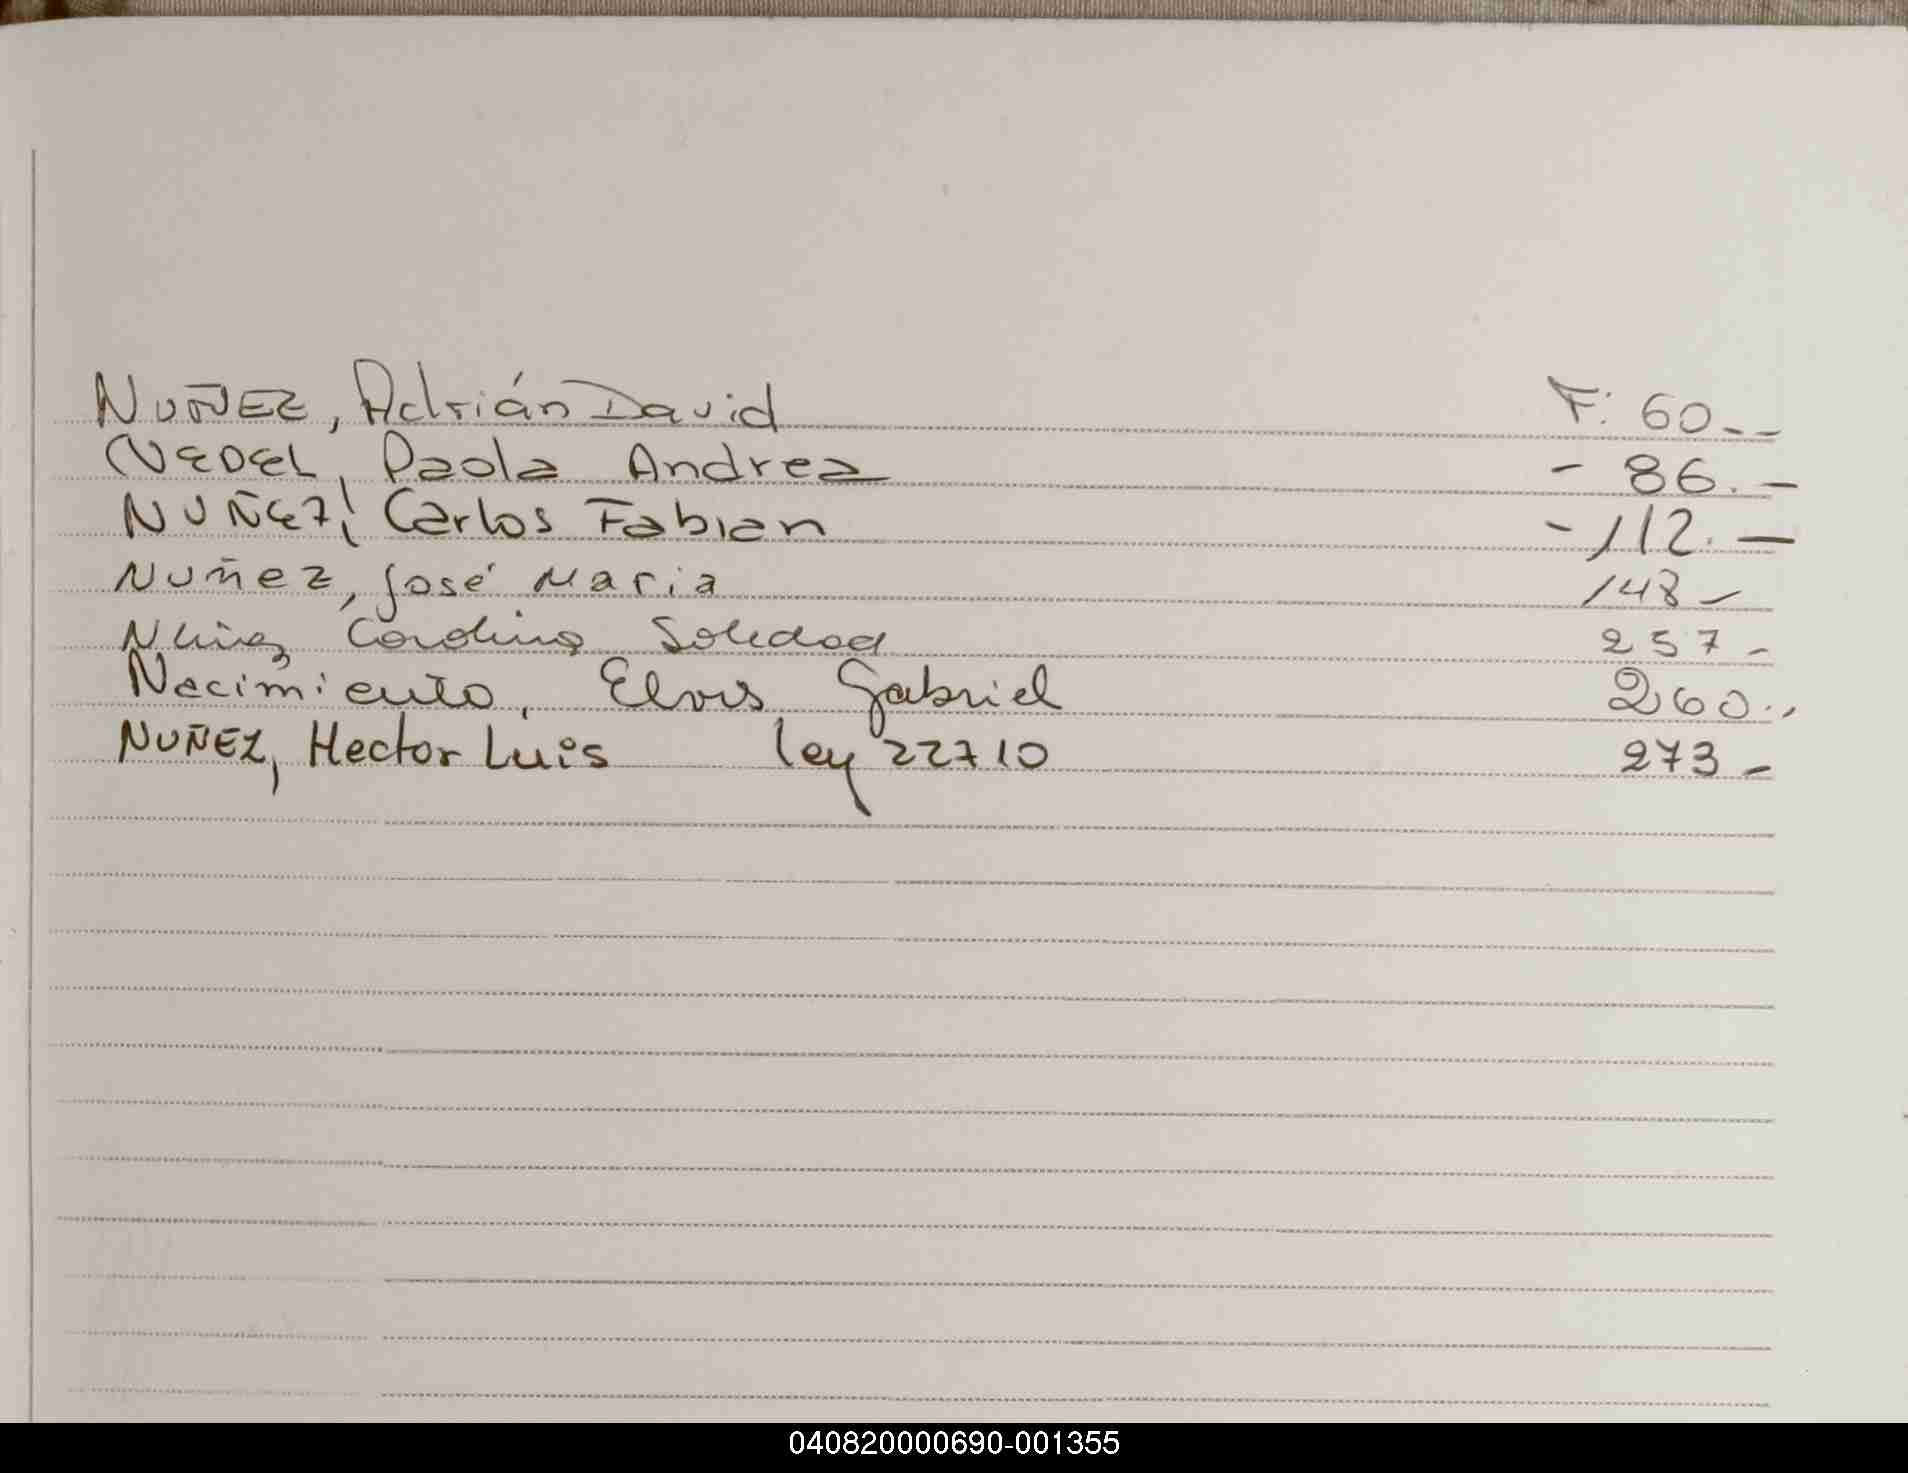 NUÑEZ, Adrián David F: 60--
NEDEL, Paola Andrea - 86.-
NUÑEZ, Carlos Fabian - 112.-
Nuñez, José Maria 148-
Soledad 257-
Nacimiento, Elvis Gabriel 260..
NUÑEZ, Hector Luis ley 22710 273-
040820000690-001355